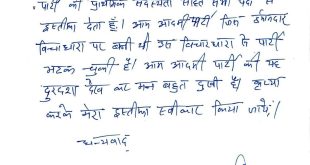 पार्टी की प्राथमिक सदस्यता सहित सभी पदों से
इस्तीफा देता हूँ। आम आदमी पार्टी जिस ईमानदार
विचारधारा पर बनी थी उस विचारधारा से पार्टी
भटक चुकी है। आम आदमी पार्टी की यह
दुरदशा देख कर मन बहुत दुखी है। कृप्या
करके मेरा इस्तीफा स्वीकार किया जाये।
धन्यवाद